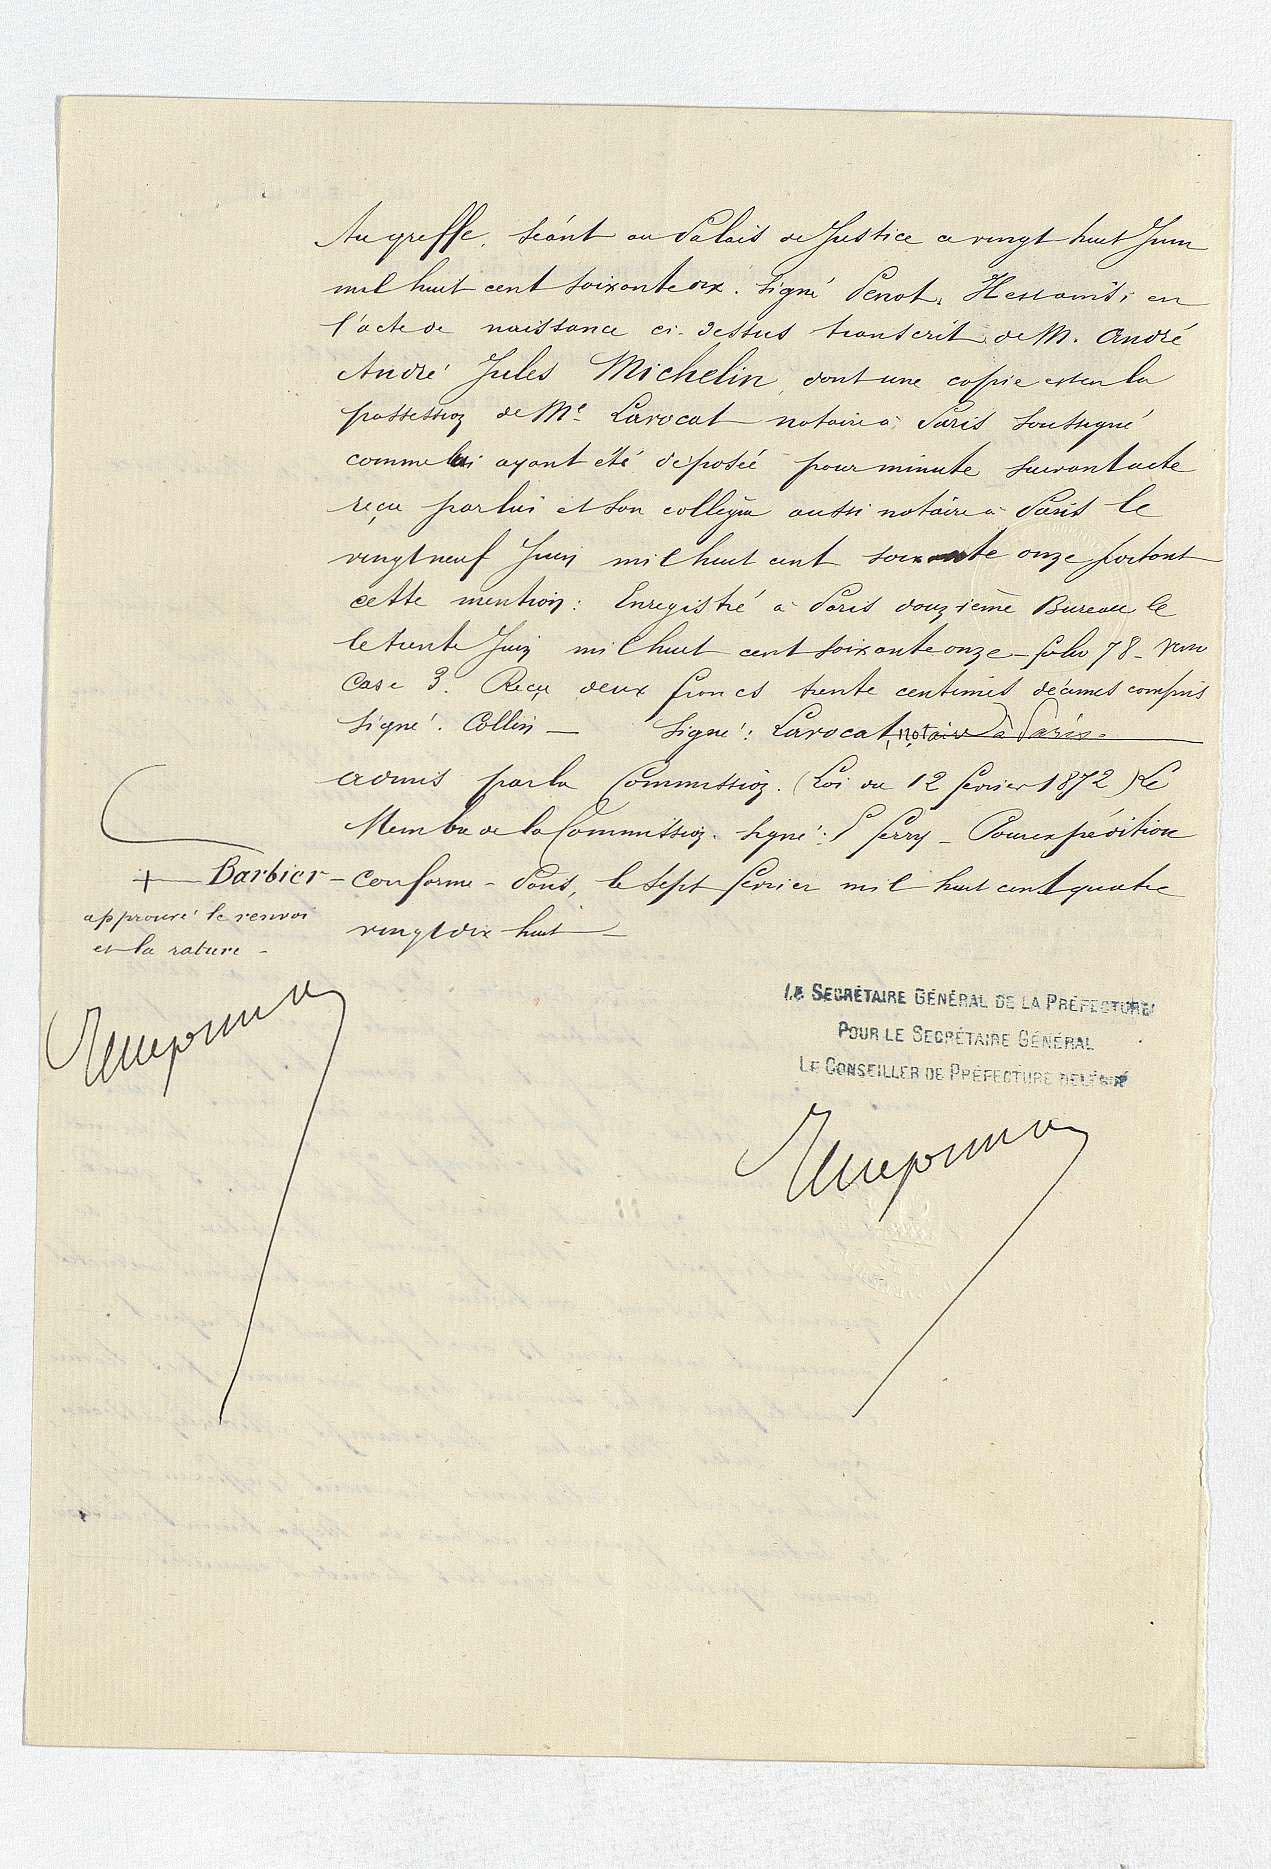 Au greffe, séant au Palais de Justice ce vingt huit Juin
mil huit cent soixante dix. Signé Penot,
l'acte de naissance ci-dessus transcrit de M. André
André Jules Michelin, dont une copie est en la
possession de Me Lavocat notaire à Paris soussigné
comme lui ayant été déposée pour minute suivant acte
reçu par lui et son collègue aussi notaire à Paris le
vingt neuf Juin mil huit cent soixante onze portant
cette mention: Enregistré à Paris douzième Bureau le
le trente Juin mil huit cent soixante onze – folio 78 – verso
Case 3. Reçu deux francs trente centimes décimes compris
Signé: Collin — Signé: Lavocat, notaire à Paris.
admis par la Commission. (Loi du 12 février 1872) Le
Membre de la Commission. Signé: P ferry – Pour expédition
+ Barbier – conforme – Paris, le sept février mil huit cent quatre
vingt dix huit —
approuvé le renvoi
et la rature –
LE SECRÉTAIRE GÉNÉRAL DE LA PRÉFECTURE
POUR LE SECRÉTAIRE GÉNÉRAL
LE CONSEILLER DE PRÉFECTURE DÉLÉGUÉ